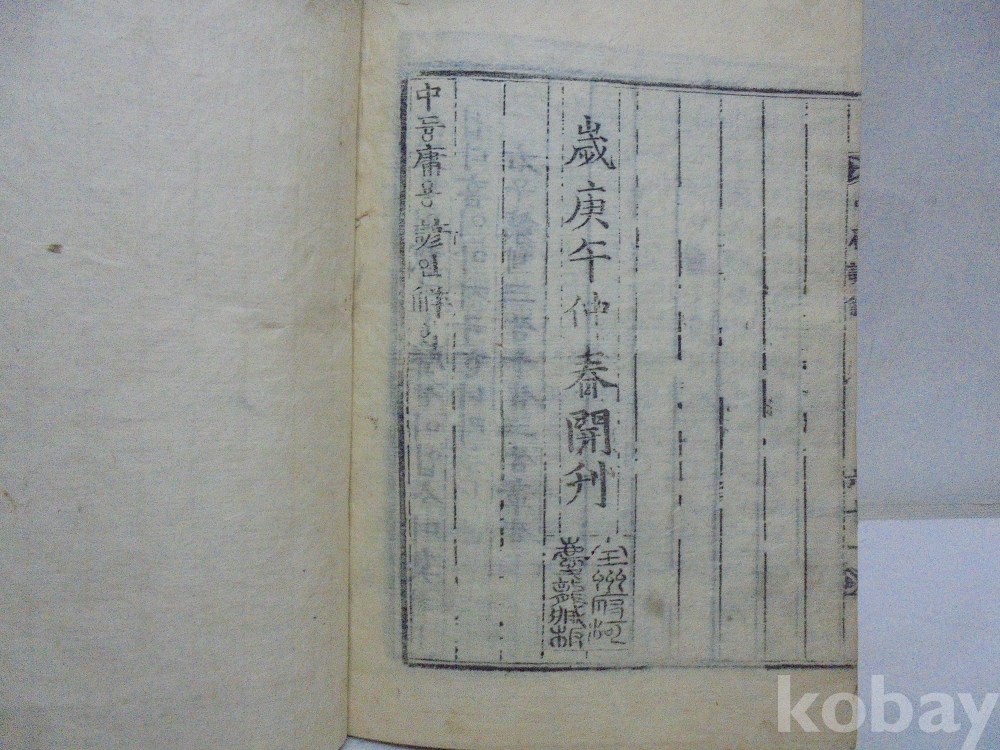 歲庚午仲春開刊
全州府河
慶龍藏板
中듕庸용諺언解ᄒᆡ
kobay